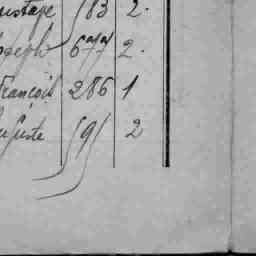 ustave 583 2.
oseph 677 2.
François 286 1
uguste 591 2